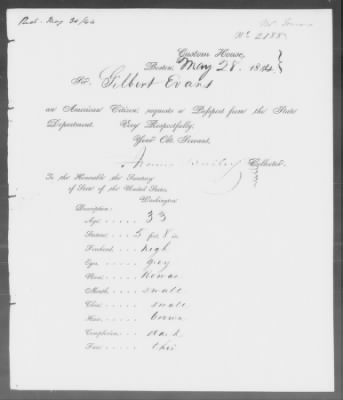 Recd. May 30/64
No 2188
Custom House,
Boston, May 28. 1864
Sir,
Gilbert Evans
an American Citizen, requests a Passport from the State
Department. Very Respectfully,
Your Obt. Servant,
Collector.
To the Honorable the Secretary
of State of the United States,
Washington.
Description:
Age 33
Stature 5 feet 8 in
Forehead high
Eyes grey
Nose Roman
Mouth small
Chin small
Hair brown
Complexion dark
Face thin